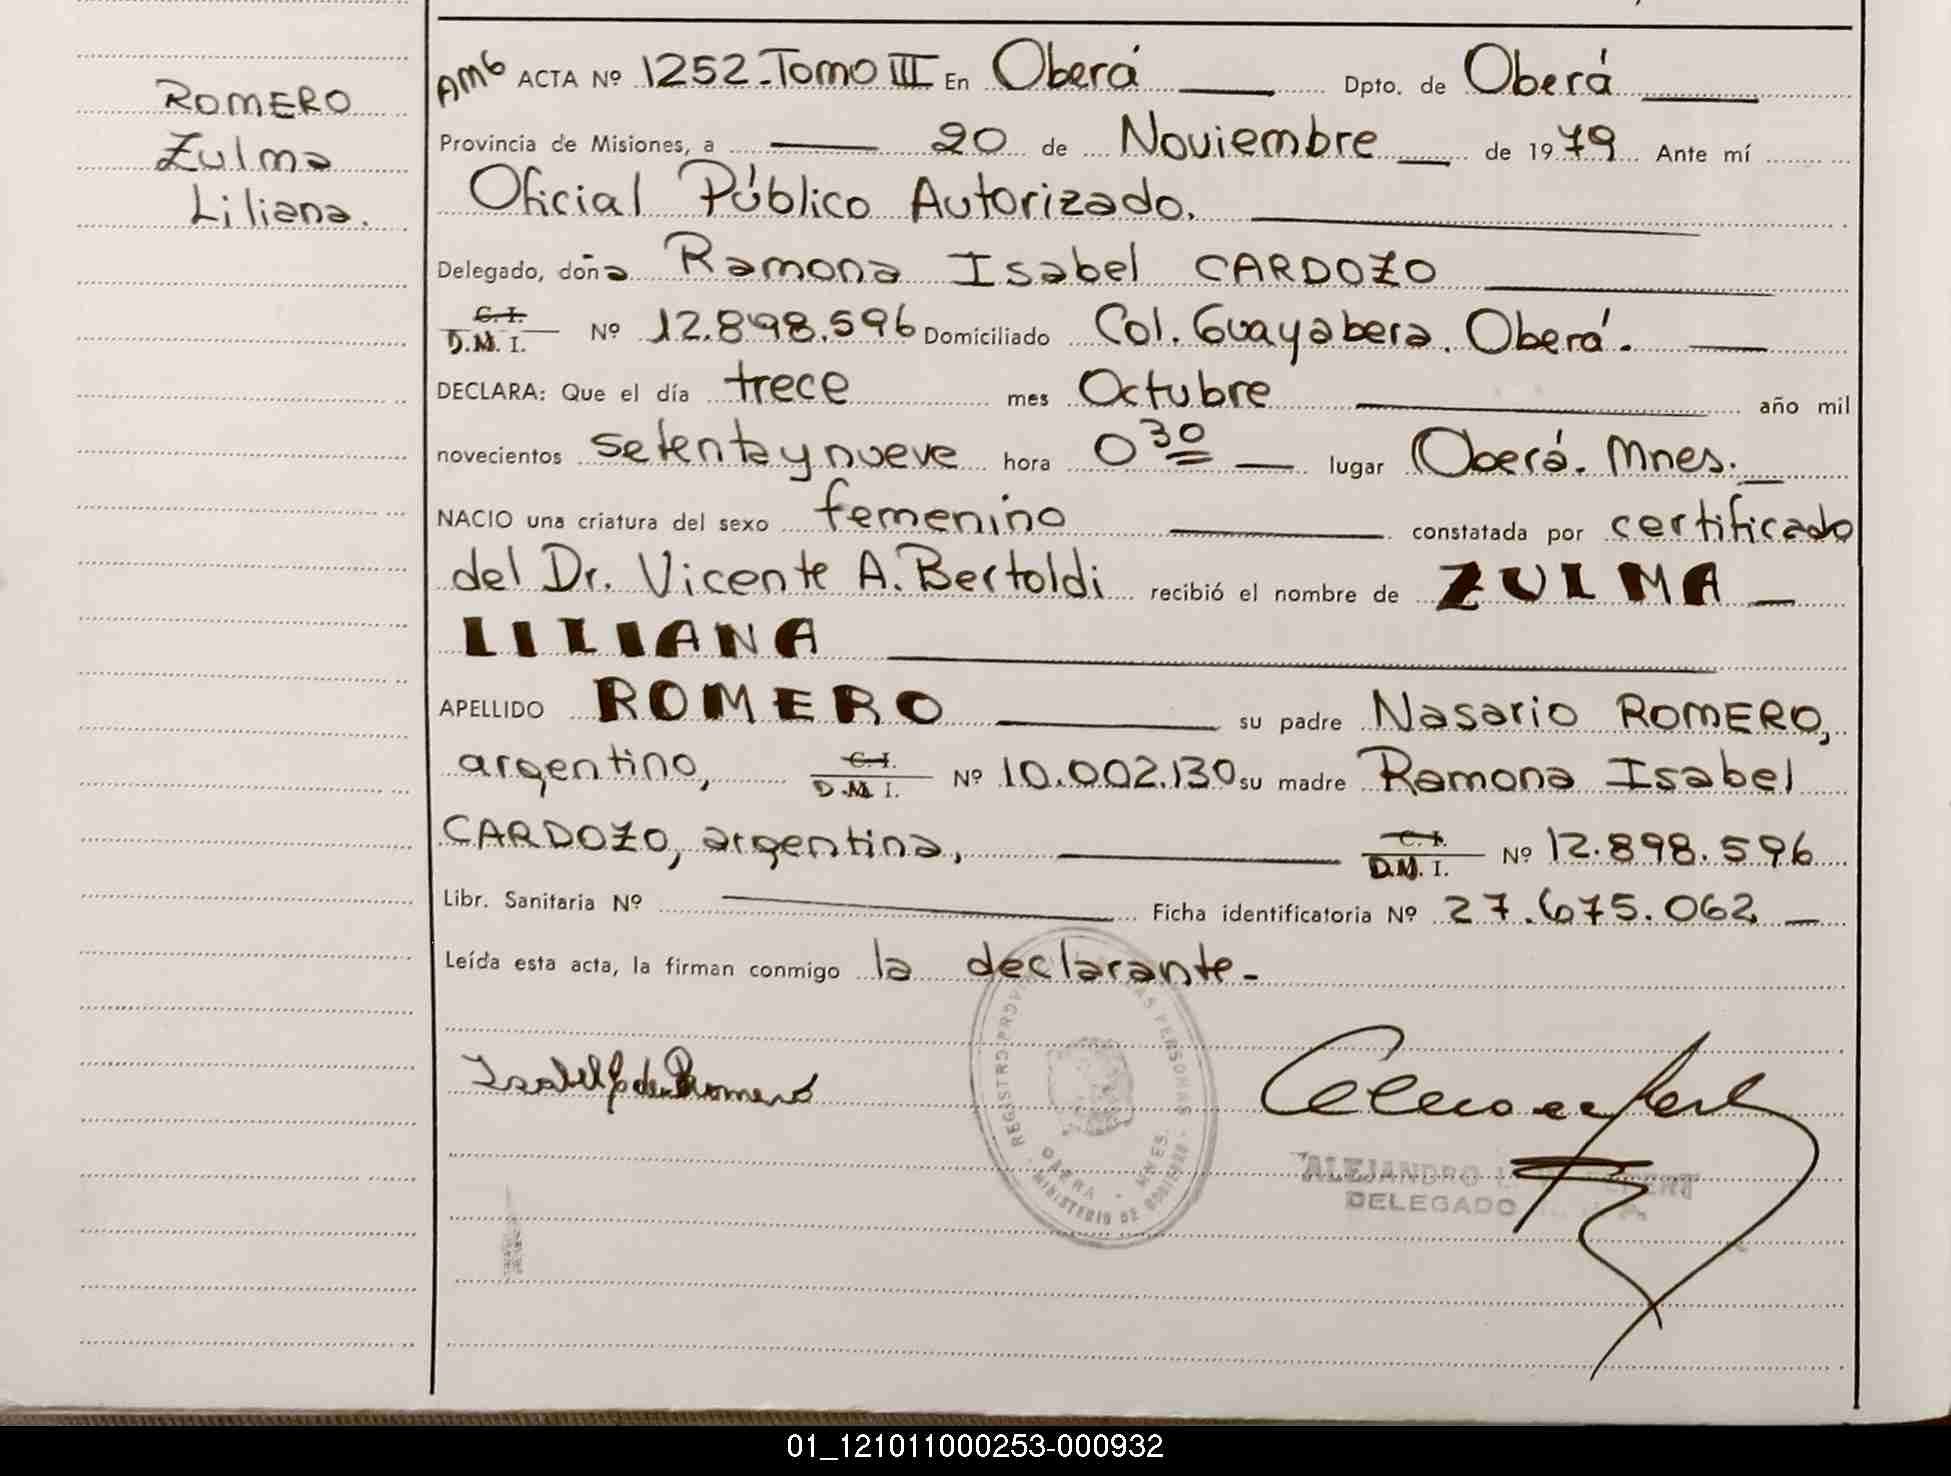 ROMERO
Zulma
Liliana.
AMG ACTA Nº 1252-Tomo III En Oberá Dpto. de Oberá
Provincia de Misiones, a 20 de Noviembre de 1979 Ante mí
Oficial Público Autorizado.
Delegado, doña Ramona Isabel CARDOZO
C. I.
D.M. I. Nº 12.898.596 Domiciliado Col. Guayabera. Oberá.
DECLARA: Que el día trece mes Octubre año mil
novecientos setenta y nueve hora 0 30 lugar Oberá. Mnes.
NACIO una criatura del sexo femenino constatada por certificado
del Dr. Vicente A. Bertoldi recibió el nombre de ZULMA
LILIANA
APELLIDO ROMERO su padre Nasario ROMERO,
argentino, C. I. D.M. I. Nº 10.002.130 su madre Ramona Isabel
CARDOZO, argentina, C. I. D.M. I. Nº 12.898.596
Libr. Sanitaria Nº Ficha identificatoria Nº 27.675.062
Leída esta acta, la firman conmigo la declarante-
REGISTRO PROV AS PERSONAS
OBERA - MNES.
MINISTERIO DE GOBIERNO
Isabel de Romero
ALEJANDRO
DELEGADO
01_121011000253-000932